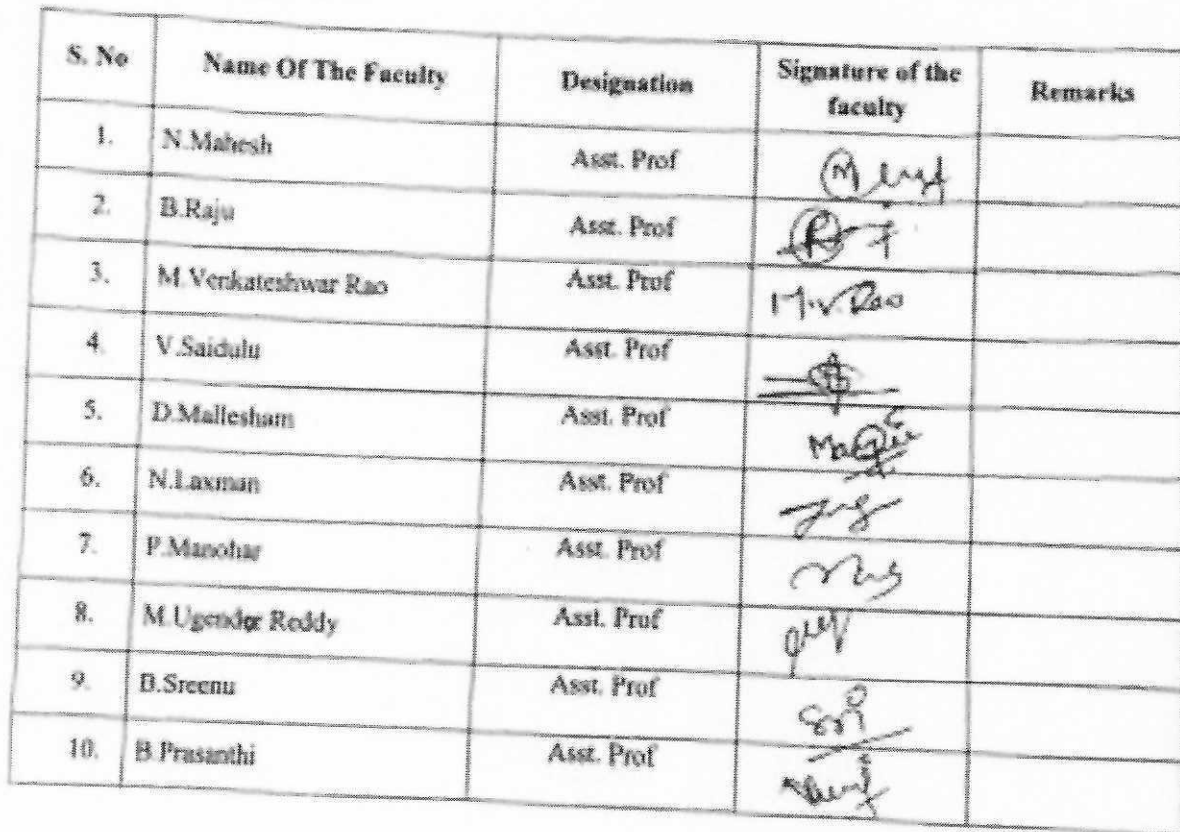 S. No Name Of The Faculty Designation Signature of the faculty Remarks
1. N.Mahesh Asst. Prof
2. B.Raju Asst. Prof
3. M.Venkateshwar Rao Asst. Prof M.V.Rao
4. V.Saidulu Asst. Prof
5. D.Mallesham Asst. Prof
6. N.Laxman Asst. Prof
7. P.Manohar Asst. Prof
8. M.Ugender Reddy Asst. Prof
9. B.Sreenu Asst. Prof
10. B.Prasanthi Asst. Prof